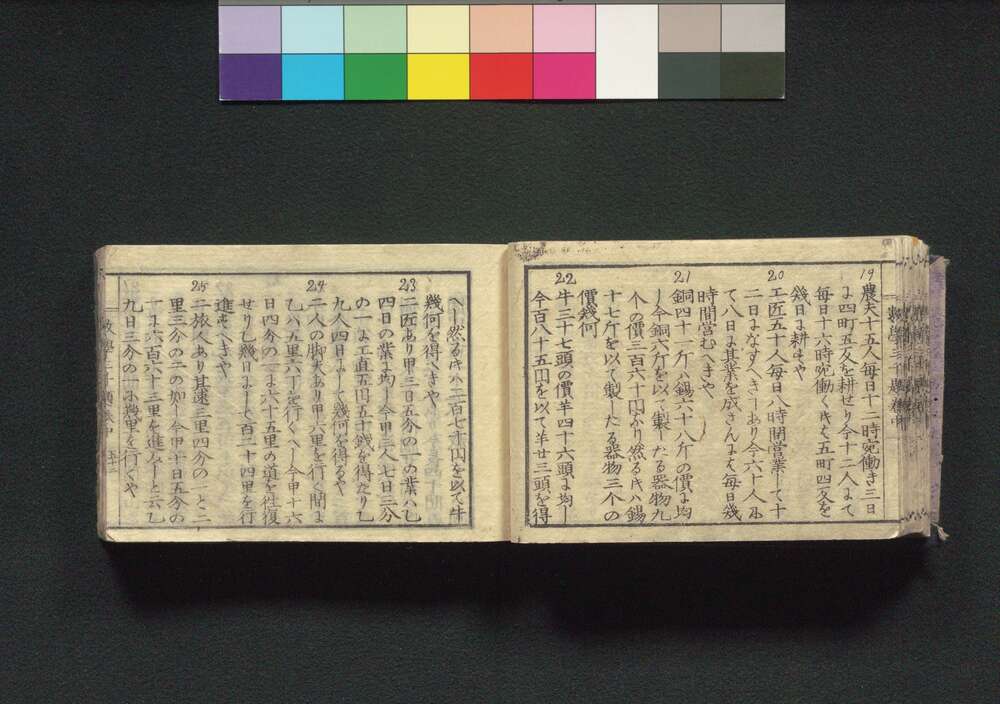 19
農夫十五人毎日十二時宛働き三日
に四町五反を耕せり今十二人にて
毎日十六時宛働くときは五町四反を
幾日に耕せや
20
工匠五十人毎日八時間営業して十
二日になすべき〜あり今六十人に
て八日に其業を成さんには毎日幾
時間営むへきや
21
銅四十一斤ハ錫六十八斤の價に均
し今銅六斤を以て製したる器物九
个の價三百六十円なり然るときハ錫
十七斤を以て製したる器物三个の
價幾何
22
牛三十七頭の價羊四十六頭に均し
今百八十五円を以て羊廿三頭を得
へし然るときハ二百七十円を以て牛
幾何を得へきや
23
二匠あり甲三日五分の一の業ハ乙
四日の業に均し今甲三人七日三分
の一に工直五円五十銭を得たり乙
九人四日にして幾何を得るや
24
二人の脚夫あり甲六里を行く間に
乙八五里六丁を行くへし今甲十六
日四分の一に六十五里の道を往復
せり乙幾日にして百二十四里を行
進すへきや
25
二旅人あり其遠三里四分の一と二
里三分の二の如し今甲十日五分の
一に六百六十三里を進むと云乙
九日三分の一に幾里を行くや